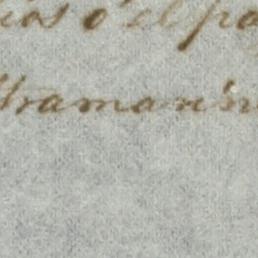 ias ó el pa
ltramarin